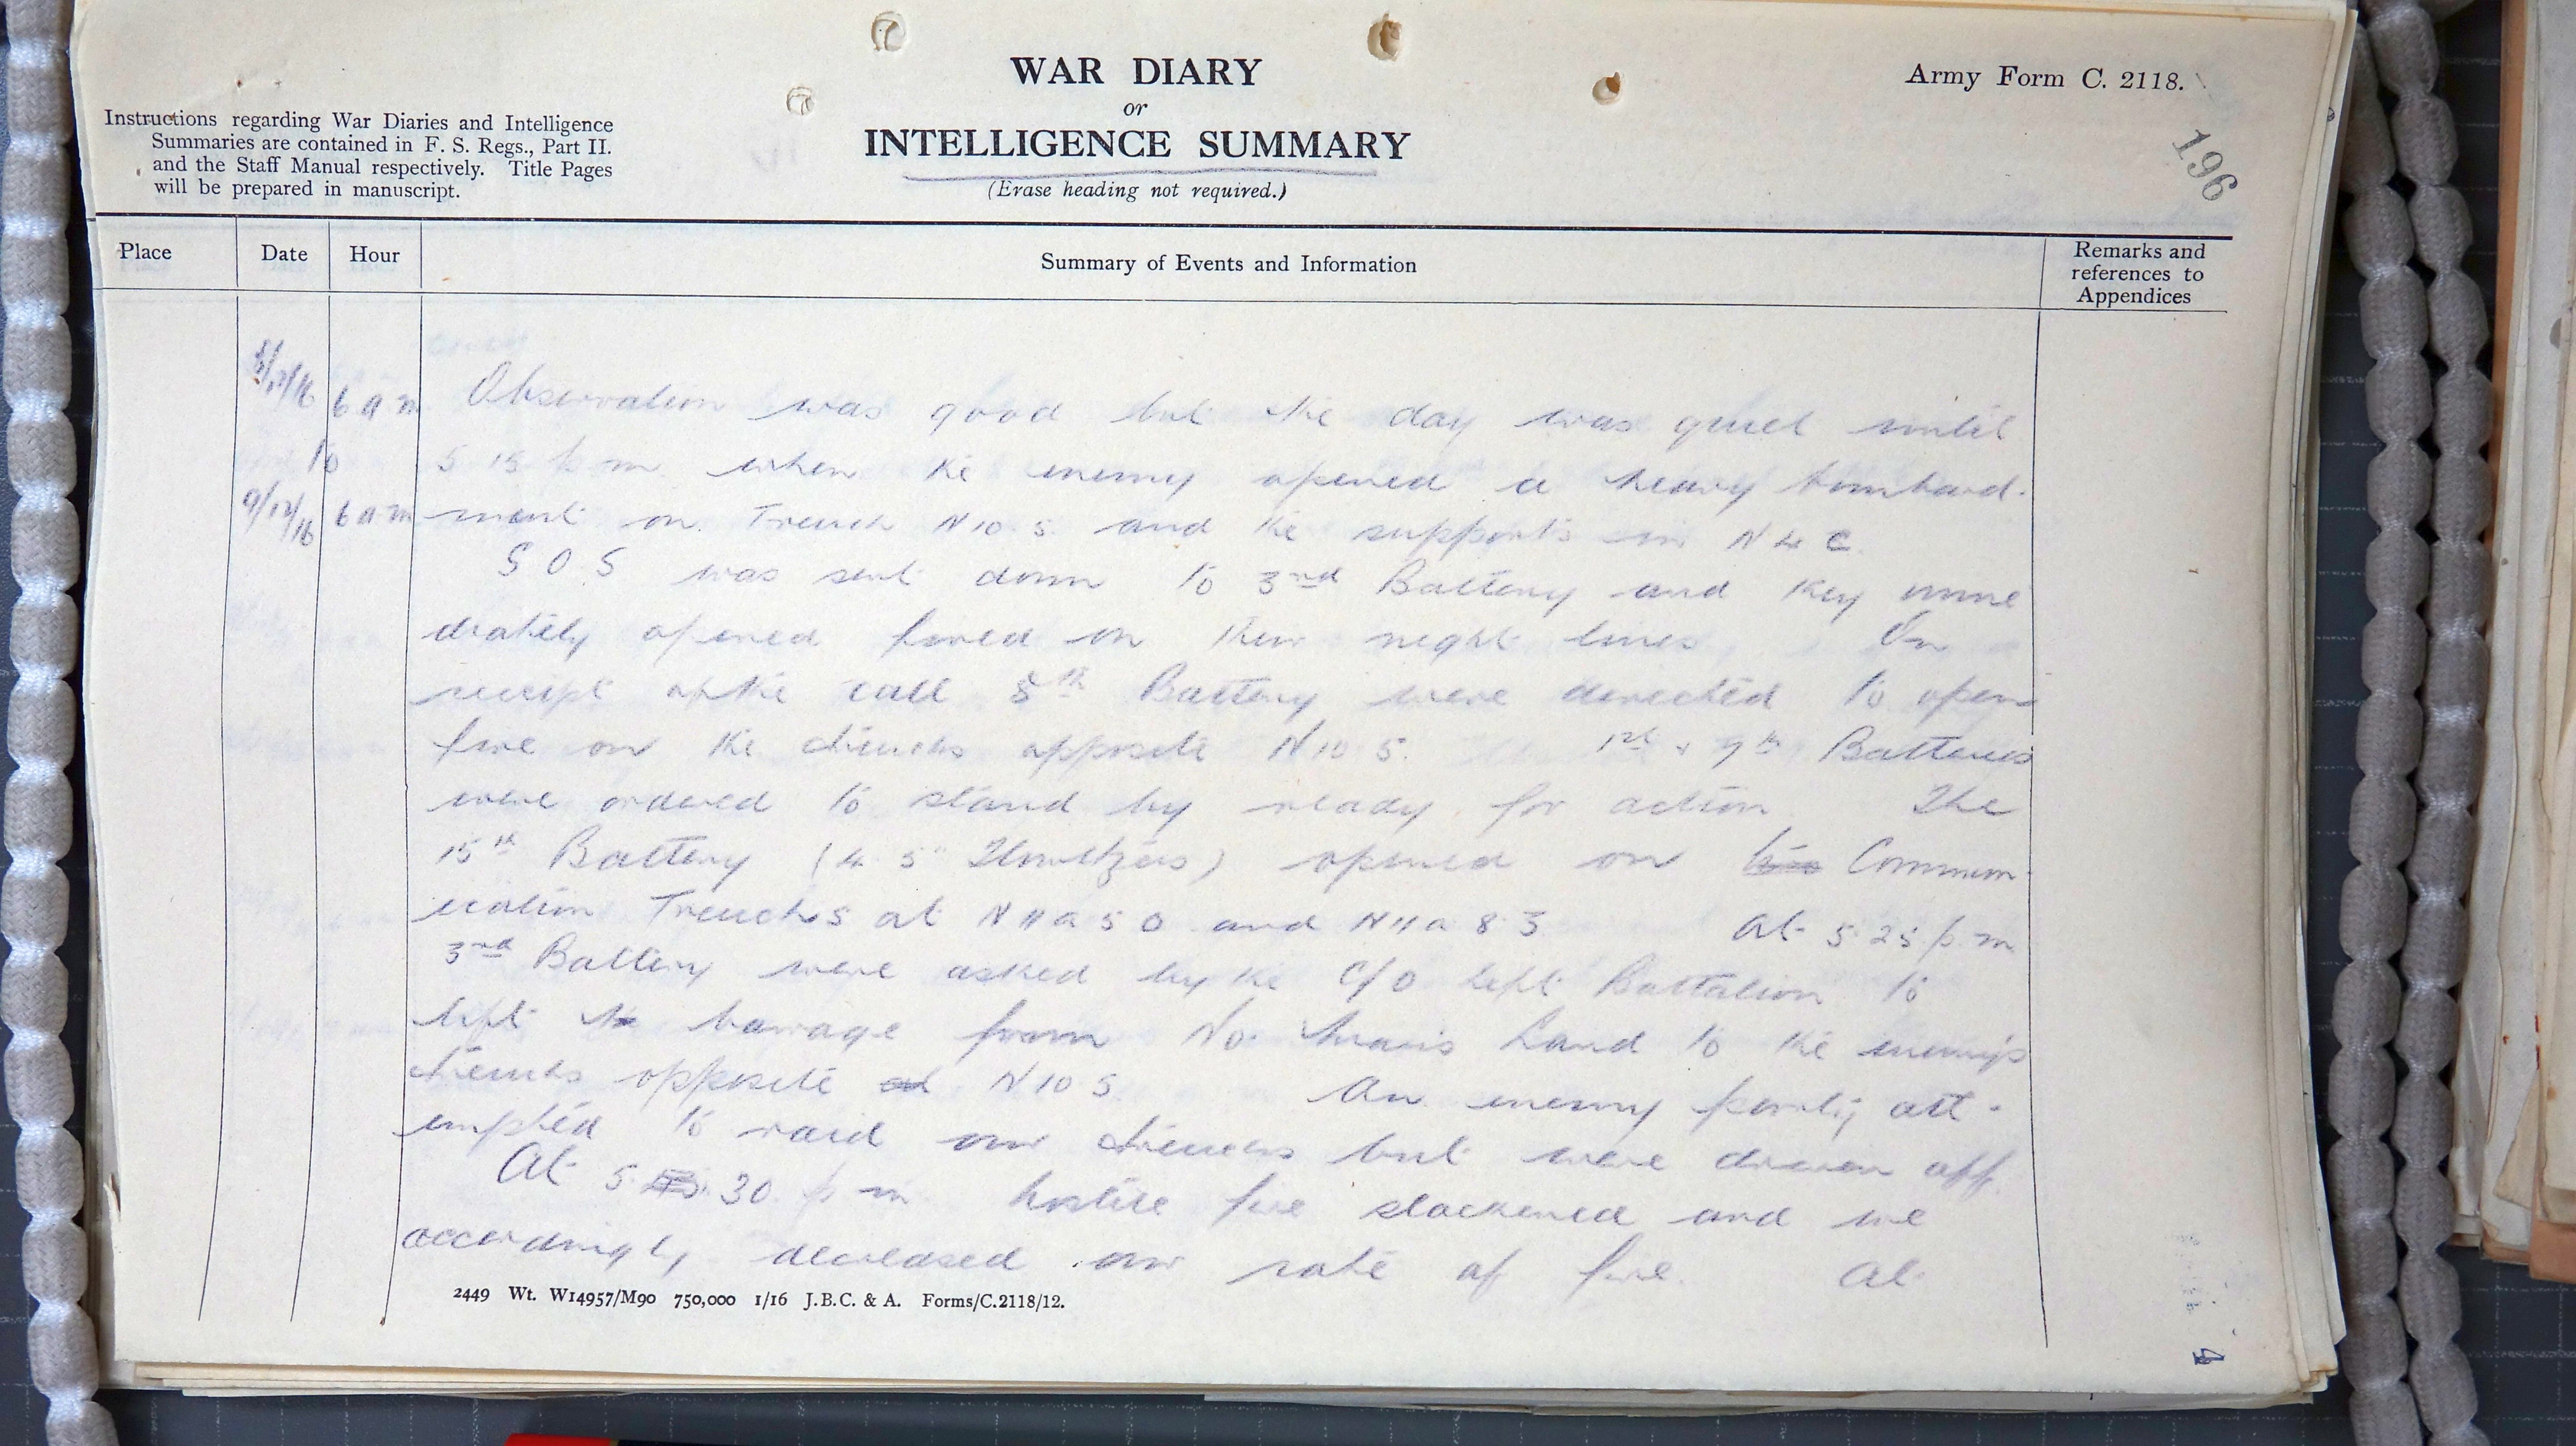 WAR DIARY
or
INTELLIGENCE SUMMARY
(Erase heading not required.)
Army Form C. 2118.
196
Instructions regarding War Diaries and Intelligence
Summaries are contained in F. S. Regs., Part II.
and the Staff Manual respectively. Title Pages
will be prepared in manuscript.
Place Date Hour Summary of Events and Information Remarks and
references to
Appendices
8/12/16 6 a m Observation was good but the day was quiet until
to 5 15 p m when the enemy opened a heavy bombard-
9/12/16 6 a m ment on Trench N 10. 5. and the supports in N 4 C.
S O S was sent down to 3rd Battery and they imme
diately opened fired on their night lines. On
receipt of the call 5th Battery were directed to open
fire on the trenches opposite N 10 5. 1st & 7th Batteries
were ordered to stand by ready for action The
15th Battery (4. 5" Howitzers) opened on Commun-
ication Trenches at N 11 a 5 0 and N 11 a 8 3 At 5.25 p.m
3rd Battery were asked by the C/O left Battalion to
lift barrage from No. Man's Land to the enemy's
trenches opposite N 10 5 An enemy party att-
empted to raid our trenches but were driven off
At 5. 30 p m hostile fire slackened and we
accordingly decreased our rate of fire. At
2449 Wt. W14957/M90 750,000 1/16 J.B.C. & A. Forms/C.2118/12.